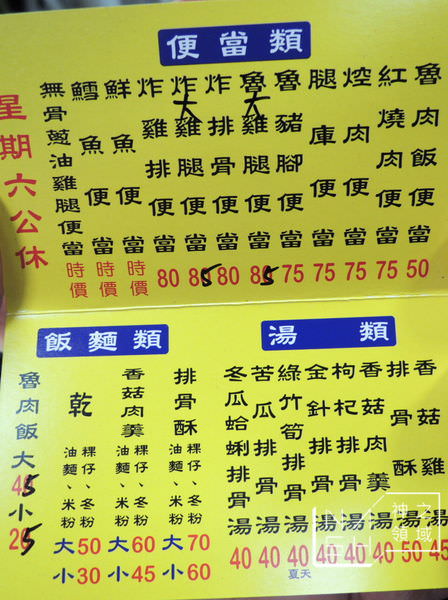 便當類
魯肉飯便當 50
紅燒肉便當 75
焢肉便當 75
腿庫便當 75
魯豬腳便當 75
魯大雞腿便當 85
炸排骨便當 80
炸大雞腿便當 85
炸雞排便當 80
鮮魚便當 時價
鱈魚便當 時價
無骨蔥油雞腿便當 時價
星期六公休
湯類
香菇雞湯 45
排骨酥湯 50
香菇肉羹湯 40
枸杞排骨湯 40
金針排骨湯 40
綠竹筍排骨湯 40 夏天
苦瓜排骨湯 40
冬瓜蛤蜊排骨湯 40
飯麵類
排骨酥 粿仔、冬粉 油麵、米粉 大70 小60
香菇肉羹 粿仔、冬粉 油麵、米粉 大60 小45
乾 粿仔、冬粉 油麵、米粉 大50 小30
魯肉飯 大45 小25
神之領域